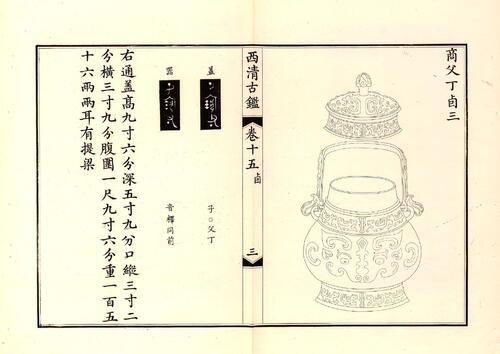 商父丁卣三
西清古鑑
卷十五
卣
三
蓋
子○父丁
器
音釋同前
右通蓋髙九寸六分深五寸九分口縱三寸二
分橫三寸九分腹圍一尺九寸六分重一百五
十六兩兩耳有提梁